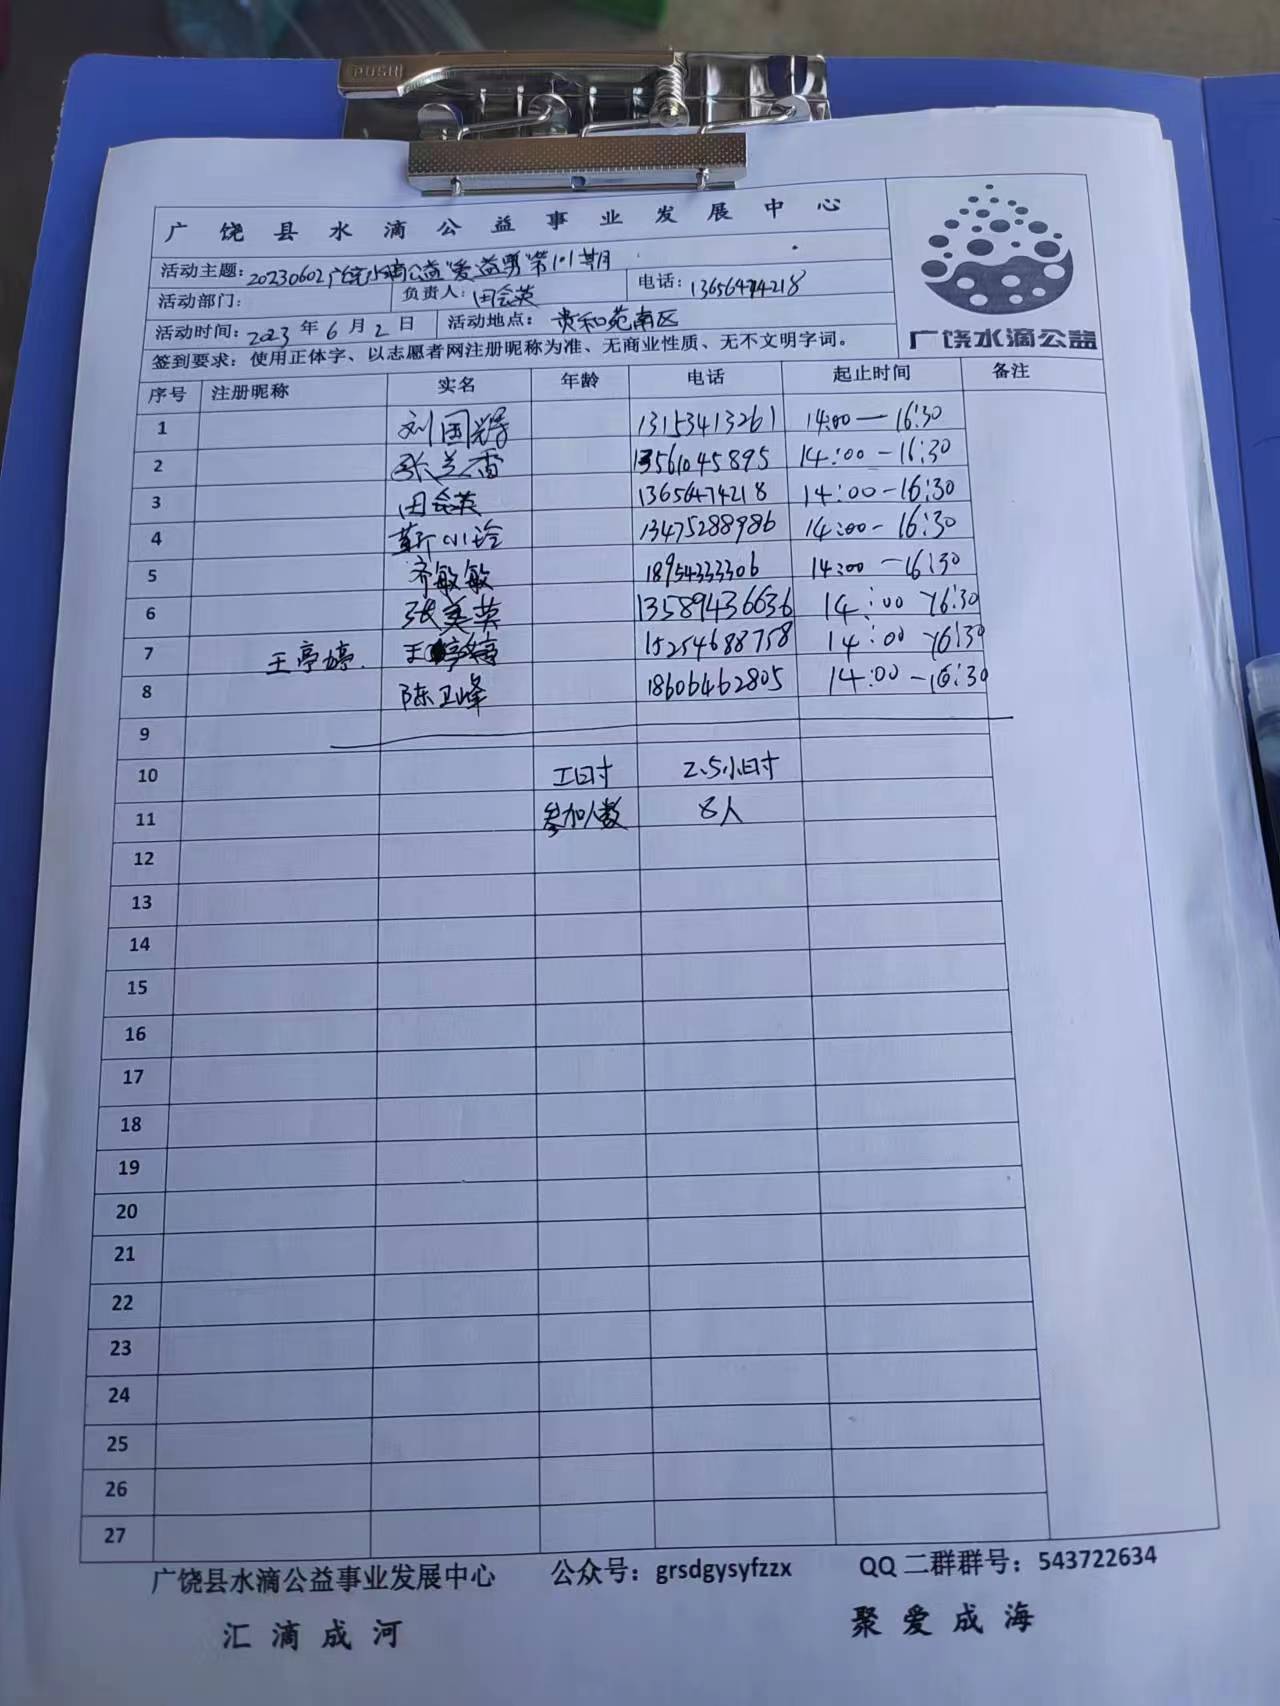 PUSH
广饶县水滴公益事业发展中心
活动主题：20230602广饶水滴公益"爱益剪"第101期
活动部门： 负责人：田会英 电话：13656474218
活动时间：2023年6月2日 活动地点：贵和苑南区
签到要求：使用正体字、以志愿者网注册昵称为准、无商业性质、无不文明字词。
广饶水滴公益
序号 注册昵称 实名 年龄 电话 起止时间 备注
1 刘国辉 13153413261 14:00—16:30
2 张兰雷 13561045895 14:00-16:30
3 田会英 13656474218 14:00-16:30
4 靳小玲 13475288986 14:00-16:30
5 齐敏敏 18954333306 14:00-16:30
6 张美英 13589436636 14:00-16:30
7 王亭婷. 15254688758 14:00-16:30
8 陈卫峰 18606462805 14:00-16:30
9
10 工时 2.5小时
11 参加人数 8人
12
13
14
15
16
17
18
19
20
21
22
23
24
25
26
27
广饶县水滴公益事业发展中心 公众号：grsdgysyfzzx QQ二群群号：543722634
汇滴成河 聚爱成海